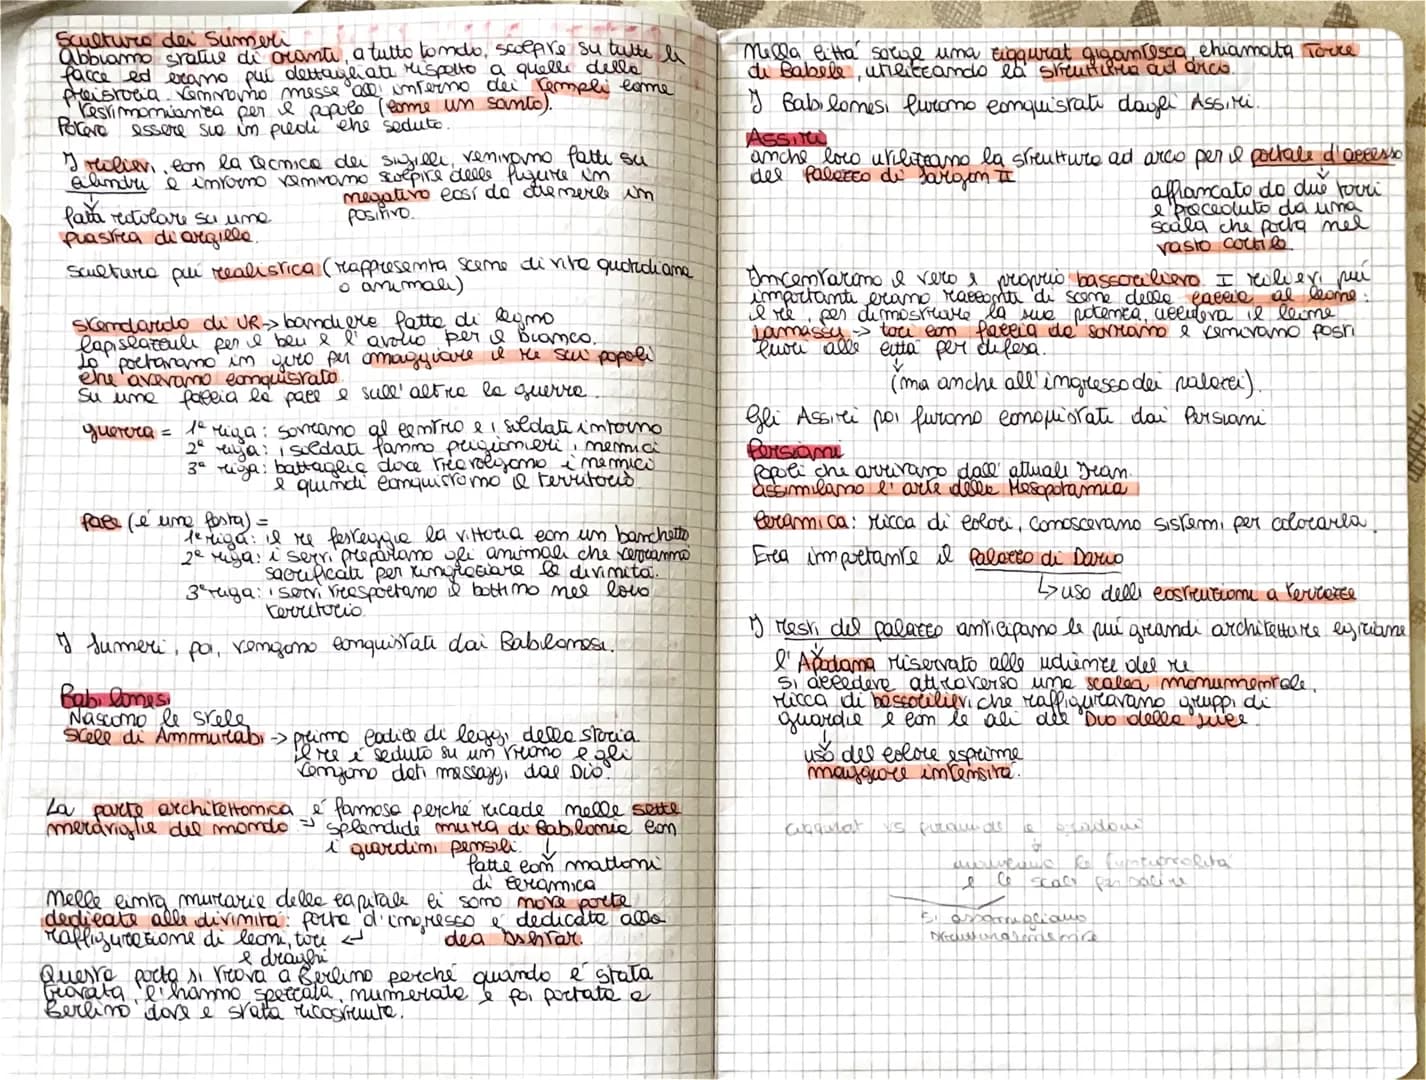 Scultura dei Sumeri
Abbiamo statue di oranti, a tutto tondo, scolpite su tutte le
facce ed erano più dettagliati rispetto a quelle della
preistoria. Venivano messe all'interno dei templi come
testimonianza per il popolo (come un santo).
Poteva essere sia in piedi che seduto.
I rilievi, con la tecnica dei sigilli, venivano fatti su
cilindri e intorno venivano scolpite delle figure in
negativo così da ottenerle in
positivo.
fatta rotolare su una
piastra di argilla.
Scultura più realistica (rappresenta scene di vita quotidiana
o animali)
stendardo di UR -> bandiere fatte di legno
lapislazzuli per il blu e l'avorio per il bianco.
Lo portavano in giro per omaggiare il re sui popoli
che avevano conquistato.
Su una faccia la pace e sull'altra la guerra.
guerra = 1ª riga: sovrano al centro e i soldati intorno
2ª riga: i soldati fanno prigionieri i nemici
3ª riga: battaglia dove travolgono i nemici
e quindi conquistano il territorio
pace (è una festa) =
1ª riga: il re festeggia la vittoria con un banchetto
2ª riga: i servi preparano gli animali che verranno
sacrificati per ringraziare le divinità.
3ª riga: i servi trasportano il bottino nel loro
territorio
I Sumeri, poi, vengono conquistati dai Babilonesi.
Babilonesi
Nascono le stele
Stele di Ammurabi -> primo codice di leggi della storia
il re è seduto su un trono e gli
vengono dati messaggi dal Dio.
La parte architettonica è famosa perché ricade nelle sette
meraviglie del mondo => splendide mura di Babilonia con
i giardini pensili.
fatte con mattoni
di ceramica
Nelle cinta murarie della capitale ci sono nove porte
dedicate alle divinità: porta d'ingresso è dedicata alla
raffigurazione di leoni, tori dea Ishtar.
e draghi
Questa porta si trova a Berlino perché quando è stata
trovata, l'hanno spezzata, numerata e poi portata a
Berlino dove è stata ricostruita.
Nella città sorge una ziggurat gigantesca, chiamata Torre
di Babele, utilizzando la struttura ad arco
I Babilonesi furono conquistati dagli Assiri.
Assiri
anche loro utilizzano la struttura ad arco per il portale d'accesso
del Palazzo di Sargon II
affiancato da due torri
e preceduto da una
scala che porta nel
vasto cortile.
Inventarono il vero e proprio bassorilievo. I rilievi più
importanti erano racconti di scene della caccia al leone:
il re, per dimostrare la sua potenza, uccideva il leone
Lamassu -> tori con faccia da sovrano e venivano posti
fuori alle città per difesa.
(ma anche all'ingresso dei palazzi).
Gli Assiri poi furono conquistati dai Persiani
Persiani
Popoli che arrivano dall'attuale Iran.
assimilano l'arte della Mesopotamia
Ceramica: ricca di colori, conoscevano sistemi per colorarla.
Era importante il Palazzo di Dario
uso delle costruzioni a terrazze
I resti del palazzo anticipano le più grandi architetture egiziane
l'Apadana riservato alle udienze del re
si accedeva attraverso una scalea monumentale,
ricca di bassorilievi che raffiguravano gruppi di
guardie e con le ali del Dio della luce.
uso del colore esprime
maggiore intensità.
ziggurat vs piramide a gradoni
funzionalità
e le scale per salire
si assomigliano
strutturalmente